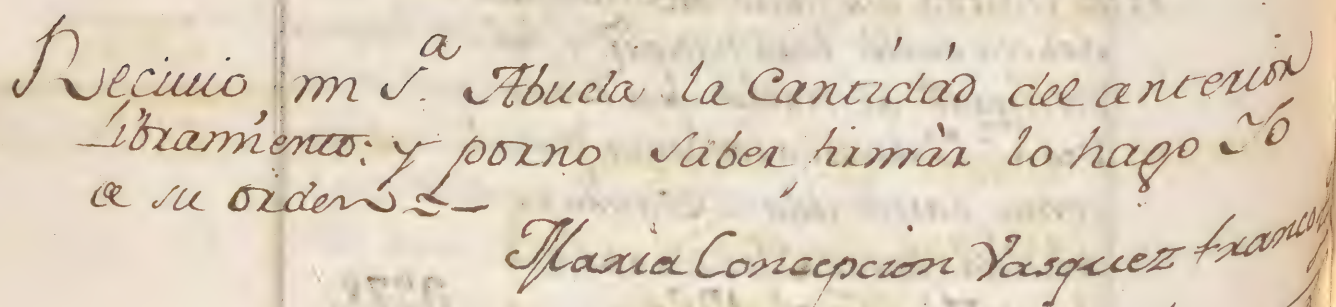 Reciuio mi S.ª Abuela la Cantidad del anterior
Libramiento: y porno saber firmàr lo hago Yo
a su orden =
Maria Concepcion Vasquez franco